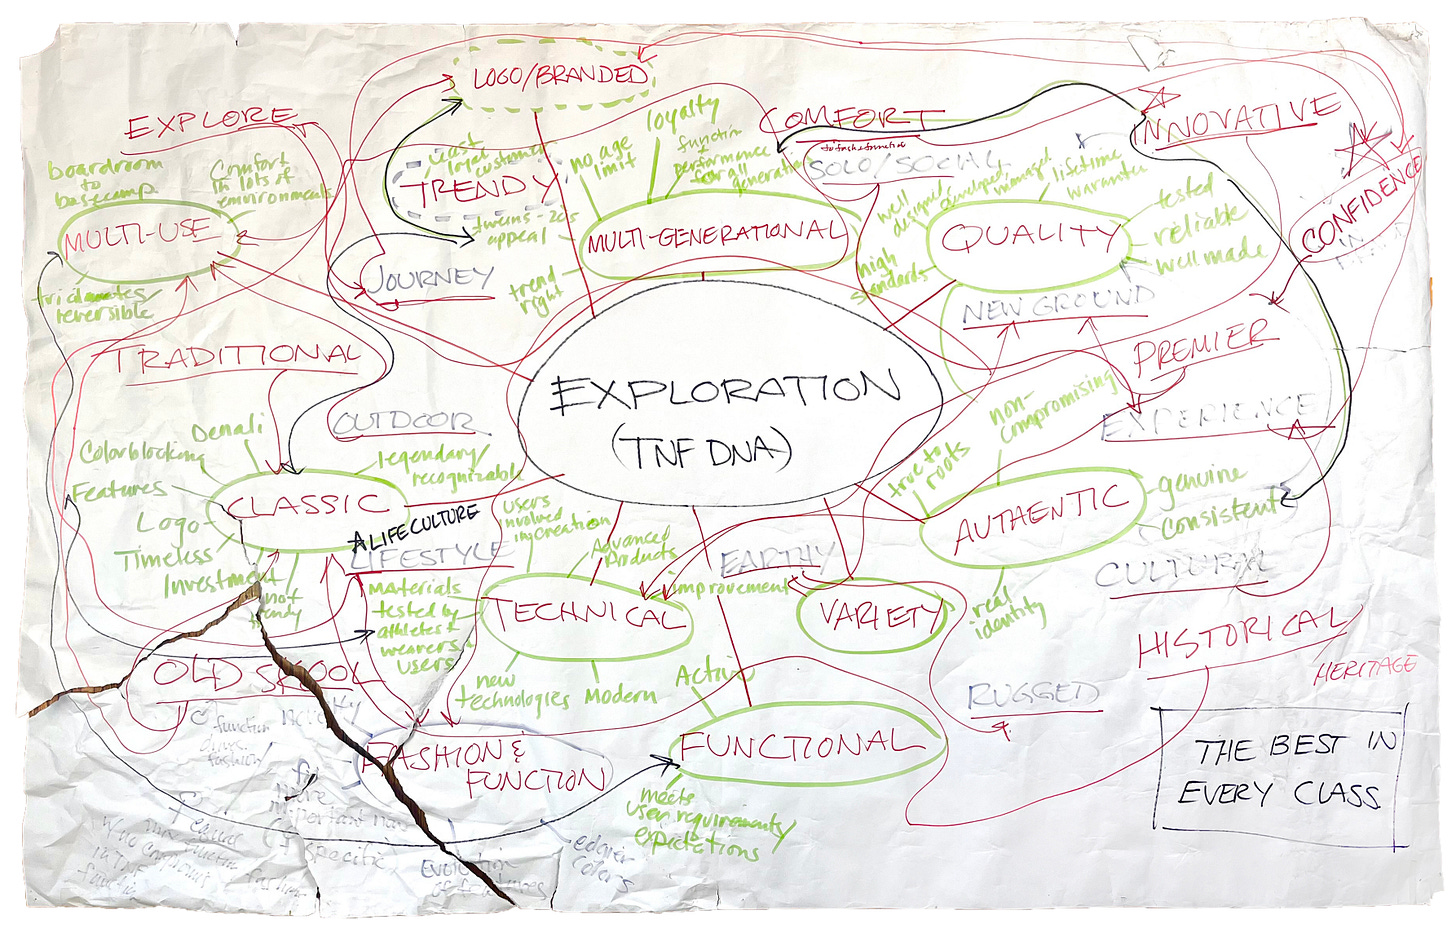 LOGO/BRANDED
EXPLORE
boardroom
to
basecamp
Comfort
in lots of
environments
MULTI-USE
reversible
TRENDY
tweens - 20s
appeal
trend
right
JOURNEY
no age
limit
loyalty
function
performance
for all
MULTI-GENERATIONAL
COMFORT
SOLO/SOCIAL
well
designed,
developed,
managed
lifetime
QUALITY
tested
reliable
well made
high
standards
INNOVATIVE
CONFIDENCE
IN
NEW GROUND
PREMIER
EXPERIENCE
TRADITIONAL
OUTDOOR
EXPLORATION
(TNF DNA)
non-
compromising
true to
roots
AUTHENTIC
genuine
consistent
real
identity
CULTURAL
Denali
Colorblocking
Features
Logo
Timeless
Investment
not
trendy
legendary/
recognizable
CLASSIC
A LIFE CULTURE
LIFESTYLE
users
involved
in creation
Advanced
Products
improvement
materials
tested by
athletes +
wearers
users
TECHNICAL
new
technologies
Modern
EARTHY
VARIETY
HISTORICAL
HERITAGE
RUGGED
OLD SKOOL
function
fashion
FASHION &
FUNCTION
Active
FUNCTIONAL
meets
user requirements/
expectations
edgier
colors
specific
THE BEST IN
EVERY CLASS